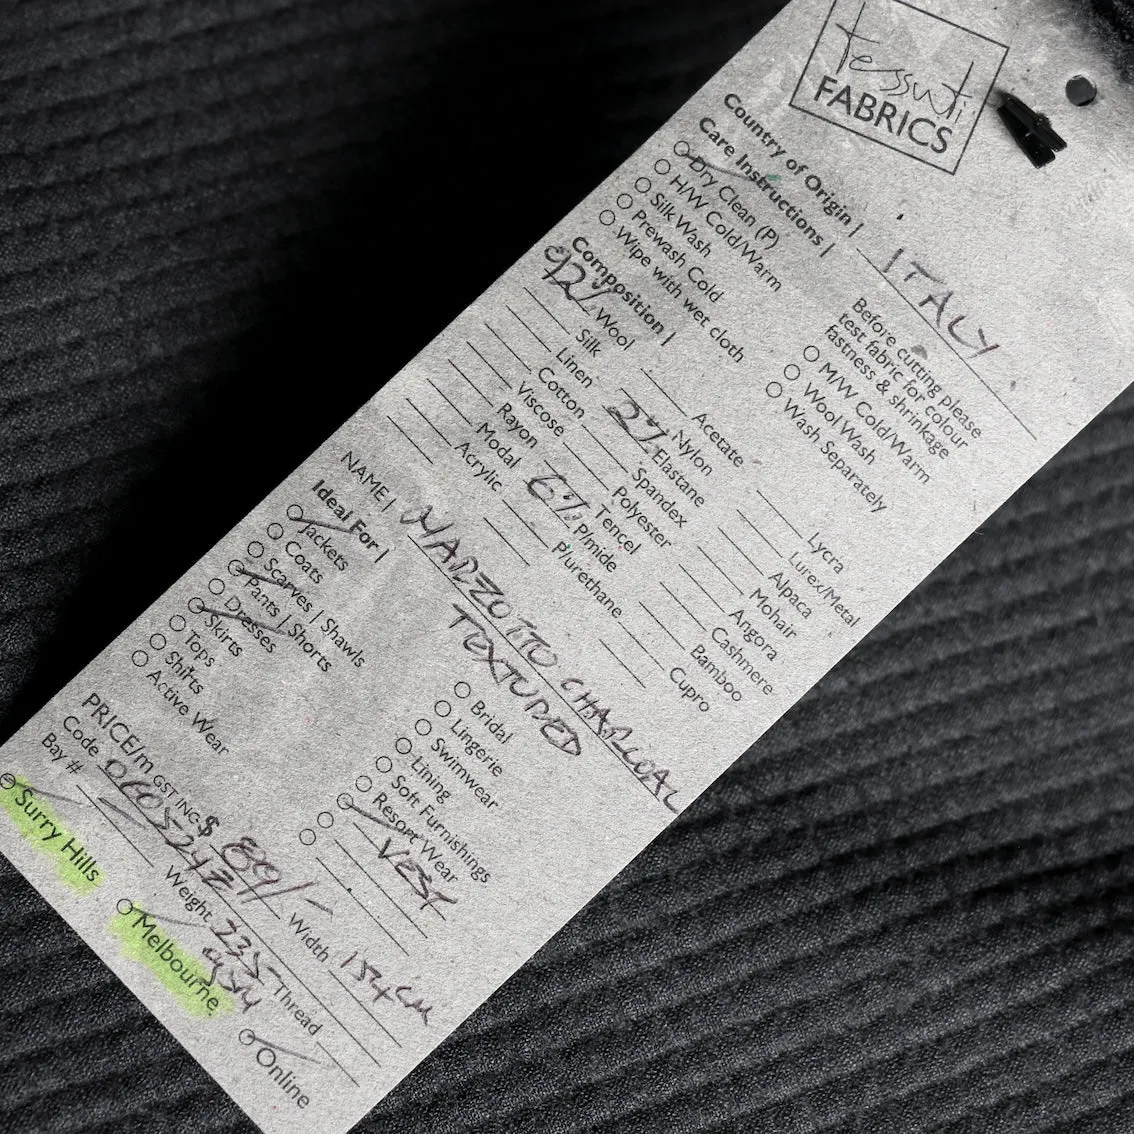 tessuti
FABRICS
Country of Origin | ITALY
Care Instructions |
Dry Clean (P)
H/W Cold/Warm
Silk Wash
Prewash Cold
Wipe with wet cloth
Before cutting please
test fabric for colour
fastness & shrinkage
M/W Cold/Warm
Wool Wash
Wash Separately
Composition |
92% Wool
Silk
Linen
Cotton
Viscose
Rayon
Modal
Acrylic
Acetate
Nylon
2% Elastane
Spandex
Polyester
Tencel
6% P/mide
P/urethane
Lycra
Lurex/Metal
Alpaca
Mohair
Angora
Cashmere
Bamboo
Cupro
NAME | MARZOTTO CHARCOAL
TEXTURED
Ideal For |
Jackets
Coats
Scarves | Shawls
Pants | Shorts
Dresses
Skirts
Tops
Shirts
Active Wear
Bridal
Lingerie
Swimwear
Lining
Soft Furnishings
Resort Wear
VEST
PRICE/m GST INC $ 89/- Width 154cm
Code
Bay # Weight 235 Thread
Surry Hills
Melbourne
Online